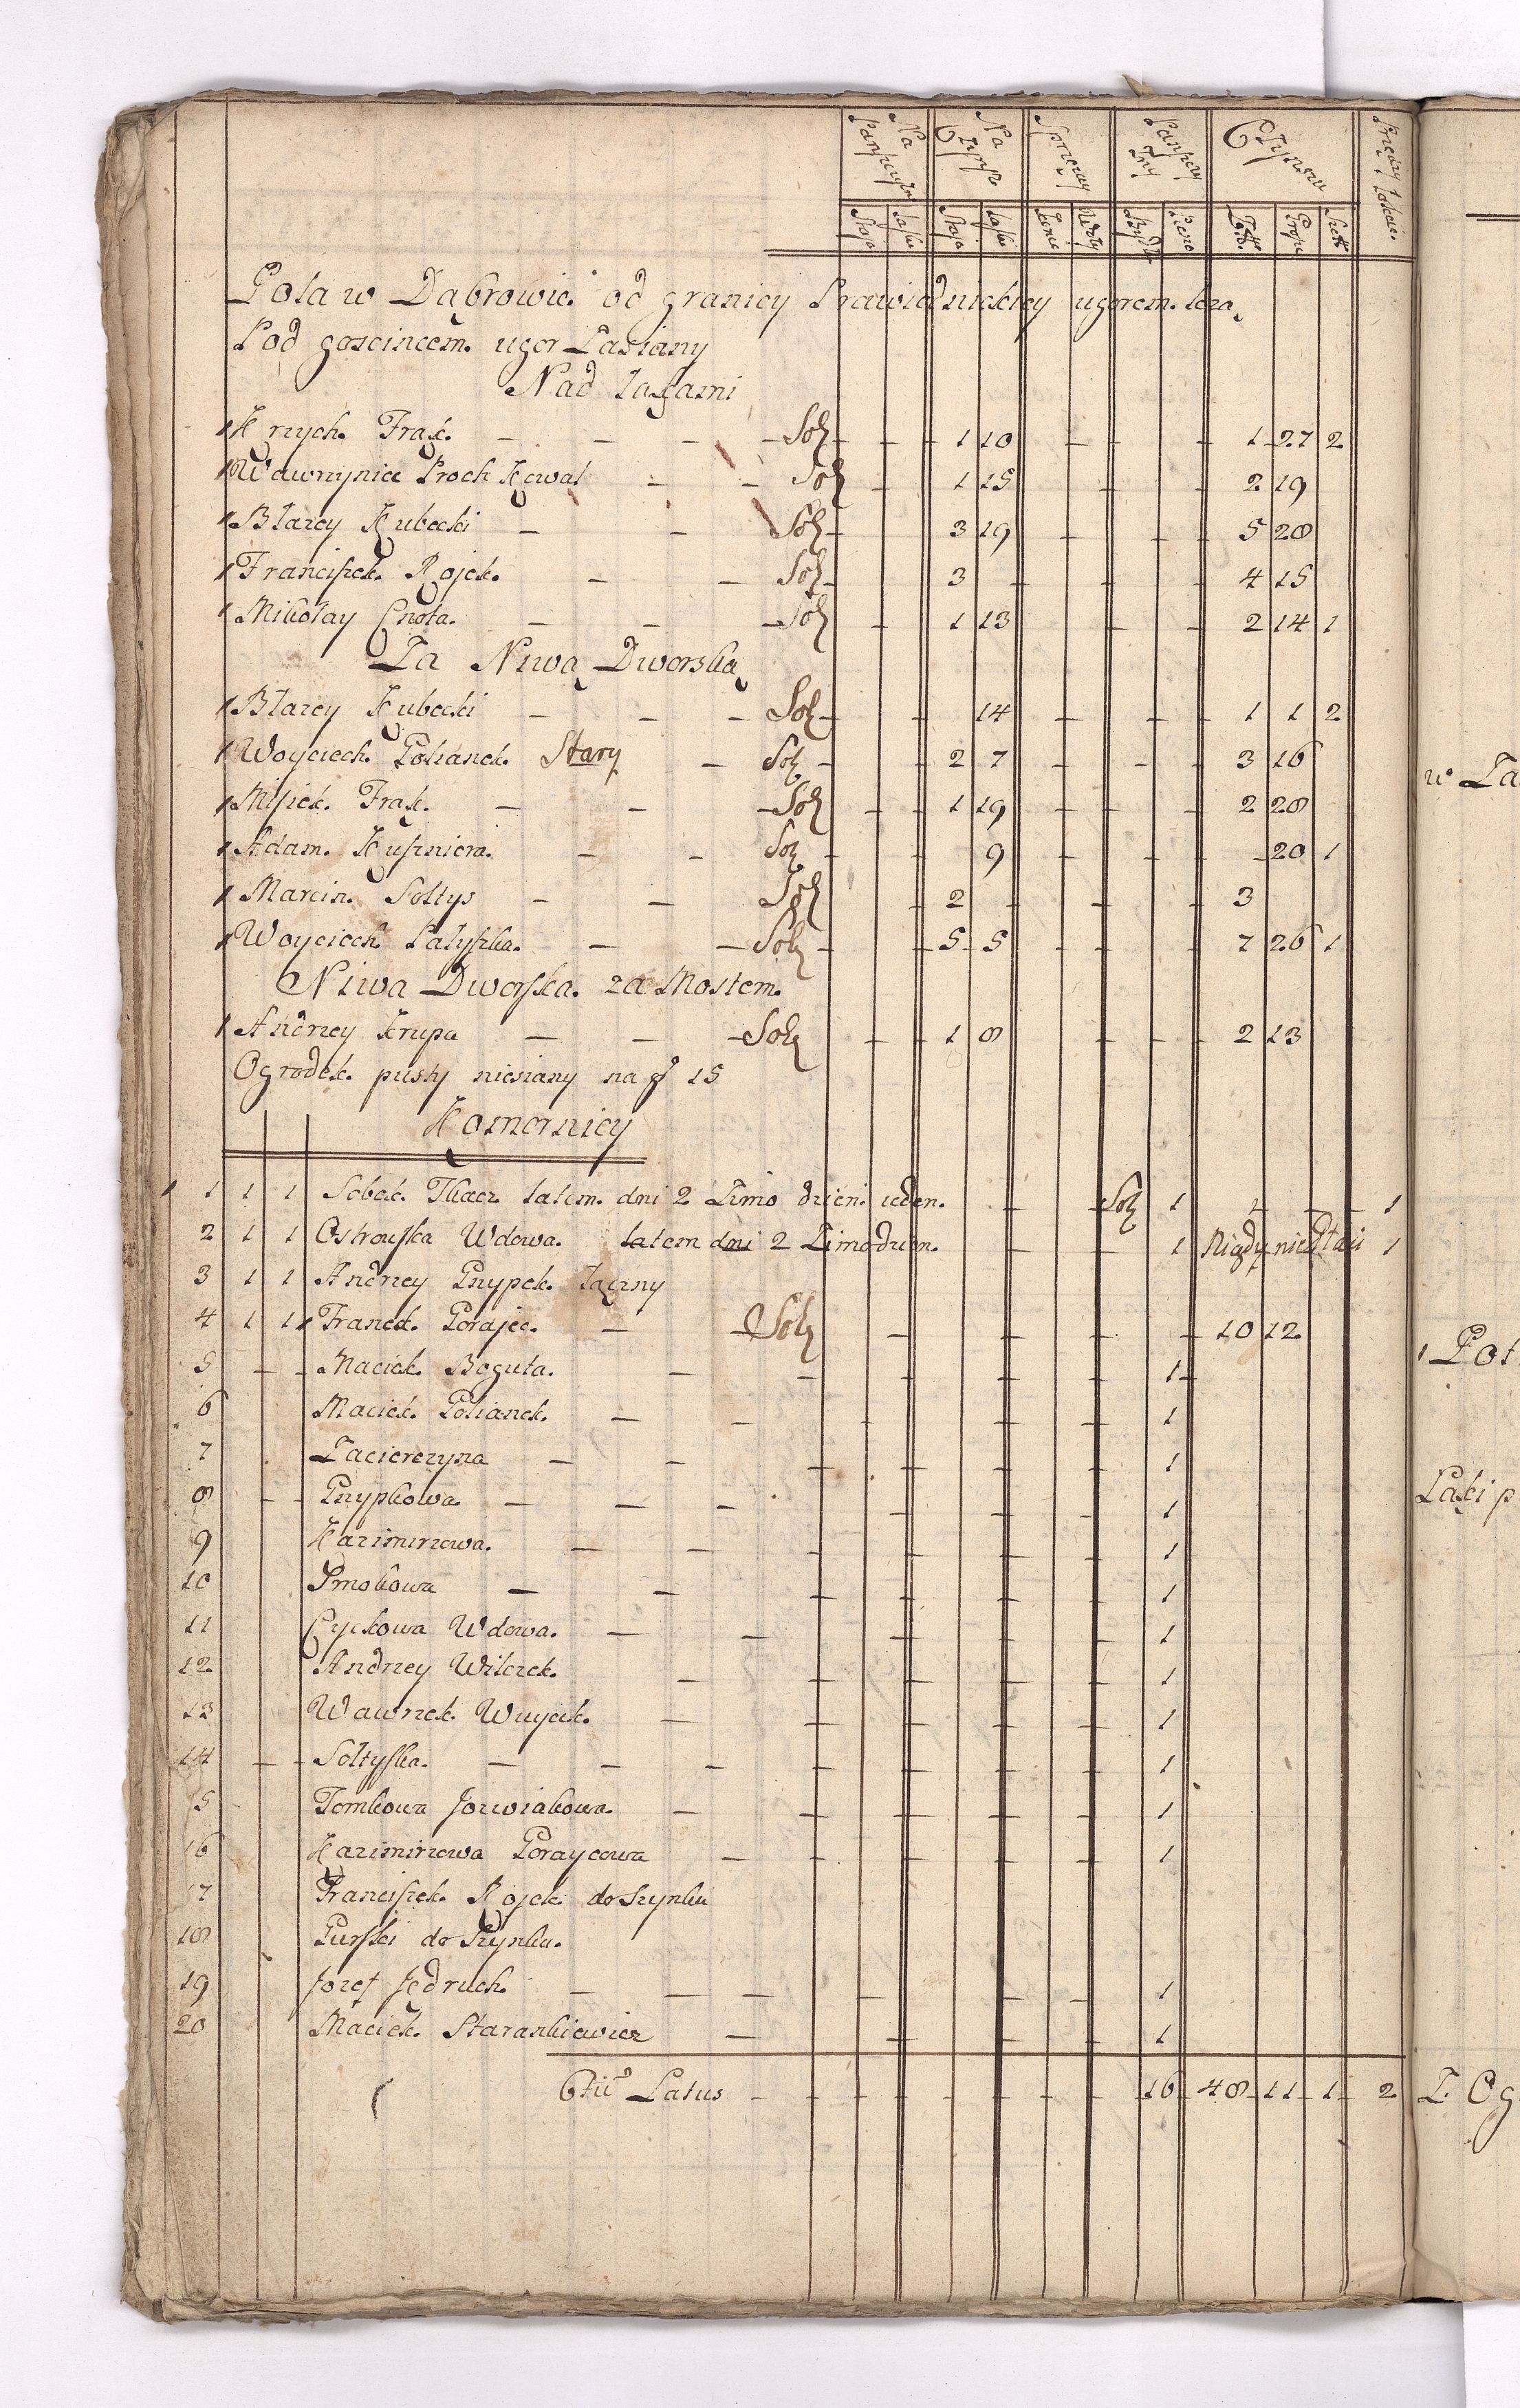 Na Panszczyzne Na Czynsz Sprzezay Panszczyzny Czynszu Przędzy łokcie
Staja Laski Staja Laski Konie Woły Bydłe Pieszo Złote Grosze Szelą
Pola w Dąbrowie od granicy Prawiednickiey ugorem leżą
Pod goscincem ugor Zasiany
Nad Łąkami
1 Krzych Frąk Solt 1 10 1 27 2
1 Wawrzyniec Proch Kowal Solt 1 15 2 19
1 Błazey Kubecki Solt 3 19 5 28
1 Franciszek Rojek Solt 3 4 15
1 Mikołay Cnota Solt 1 13 2 14 1
Za Niwą Dworską
1 Błazey Kubecki Solt 14 1 1 2
1 Woyciech Polianek Stary Solt 2 7 3 16
1 Misiek Frąk Solt 1 19 2 28
1 Adam Kusznierz Solt 9 20 1
1 Marcin Sołtys Solt 2 3
1 Woyciech Pałyszka Solt 5 5 7 26 1
Niwa Dworska za Mostem
1 Andrzey Krupa Solt 1 8 2 13
Ogrodek pusty niesiany na 15
Komornicy
1 1 1 Sobek Tkacz latem dni 2 Zimo dzien ieden Solt 1 1
2 1 1 Ostrowska Wdowa latem dni 2 Zimo dzien 1 1
3 1 1 Andrzey Gnypek
4 1 1 Franek Gorajec Solt 10 12
5 Maciek Boguta 1
6 Maciek Polianek 1
7 Zacierczyna 1
8 Gnypkowa 1
9 Kazimirzowa 1
10 Smokowa 1
11 Cyckowa Wdowa 1
12 Andrzey Wilczek 1
13 Wawrzek Wuycik 1
14 Sołtyska 1
15 Tomkowa Jozwiakowa 1
16 Kazimirzowa Goraycowa 1
17 Franciszek Rojek do Szynku
18 Gurski do Szynku
19 Jozef Jędruch 1
20 Maciek Starankiewicz 1
Latus 16 48 11 1 2
w Za
1 Pot
Łąki p
Z Og